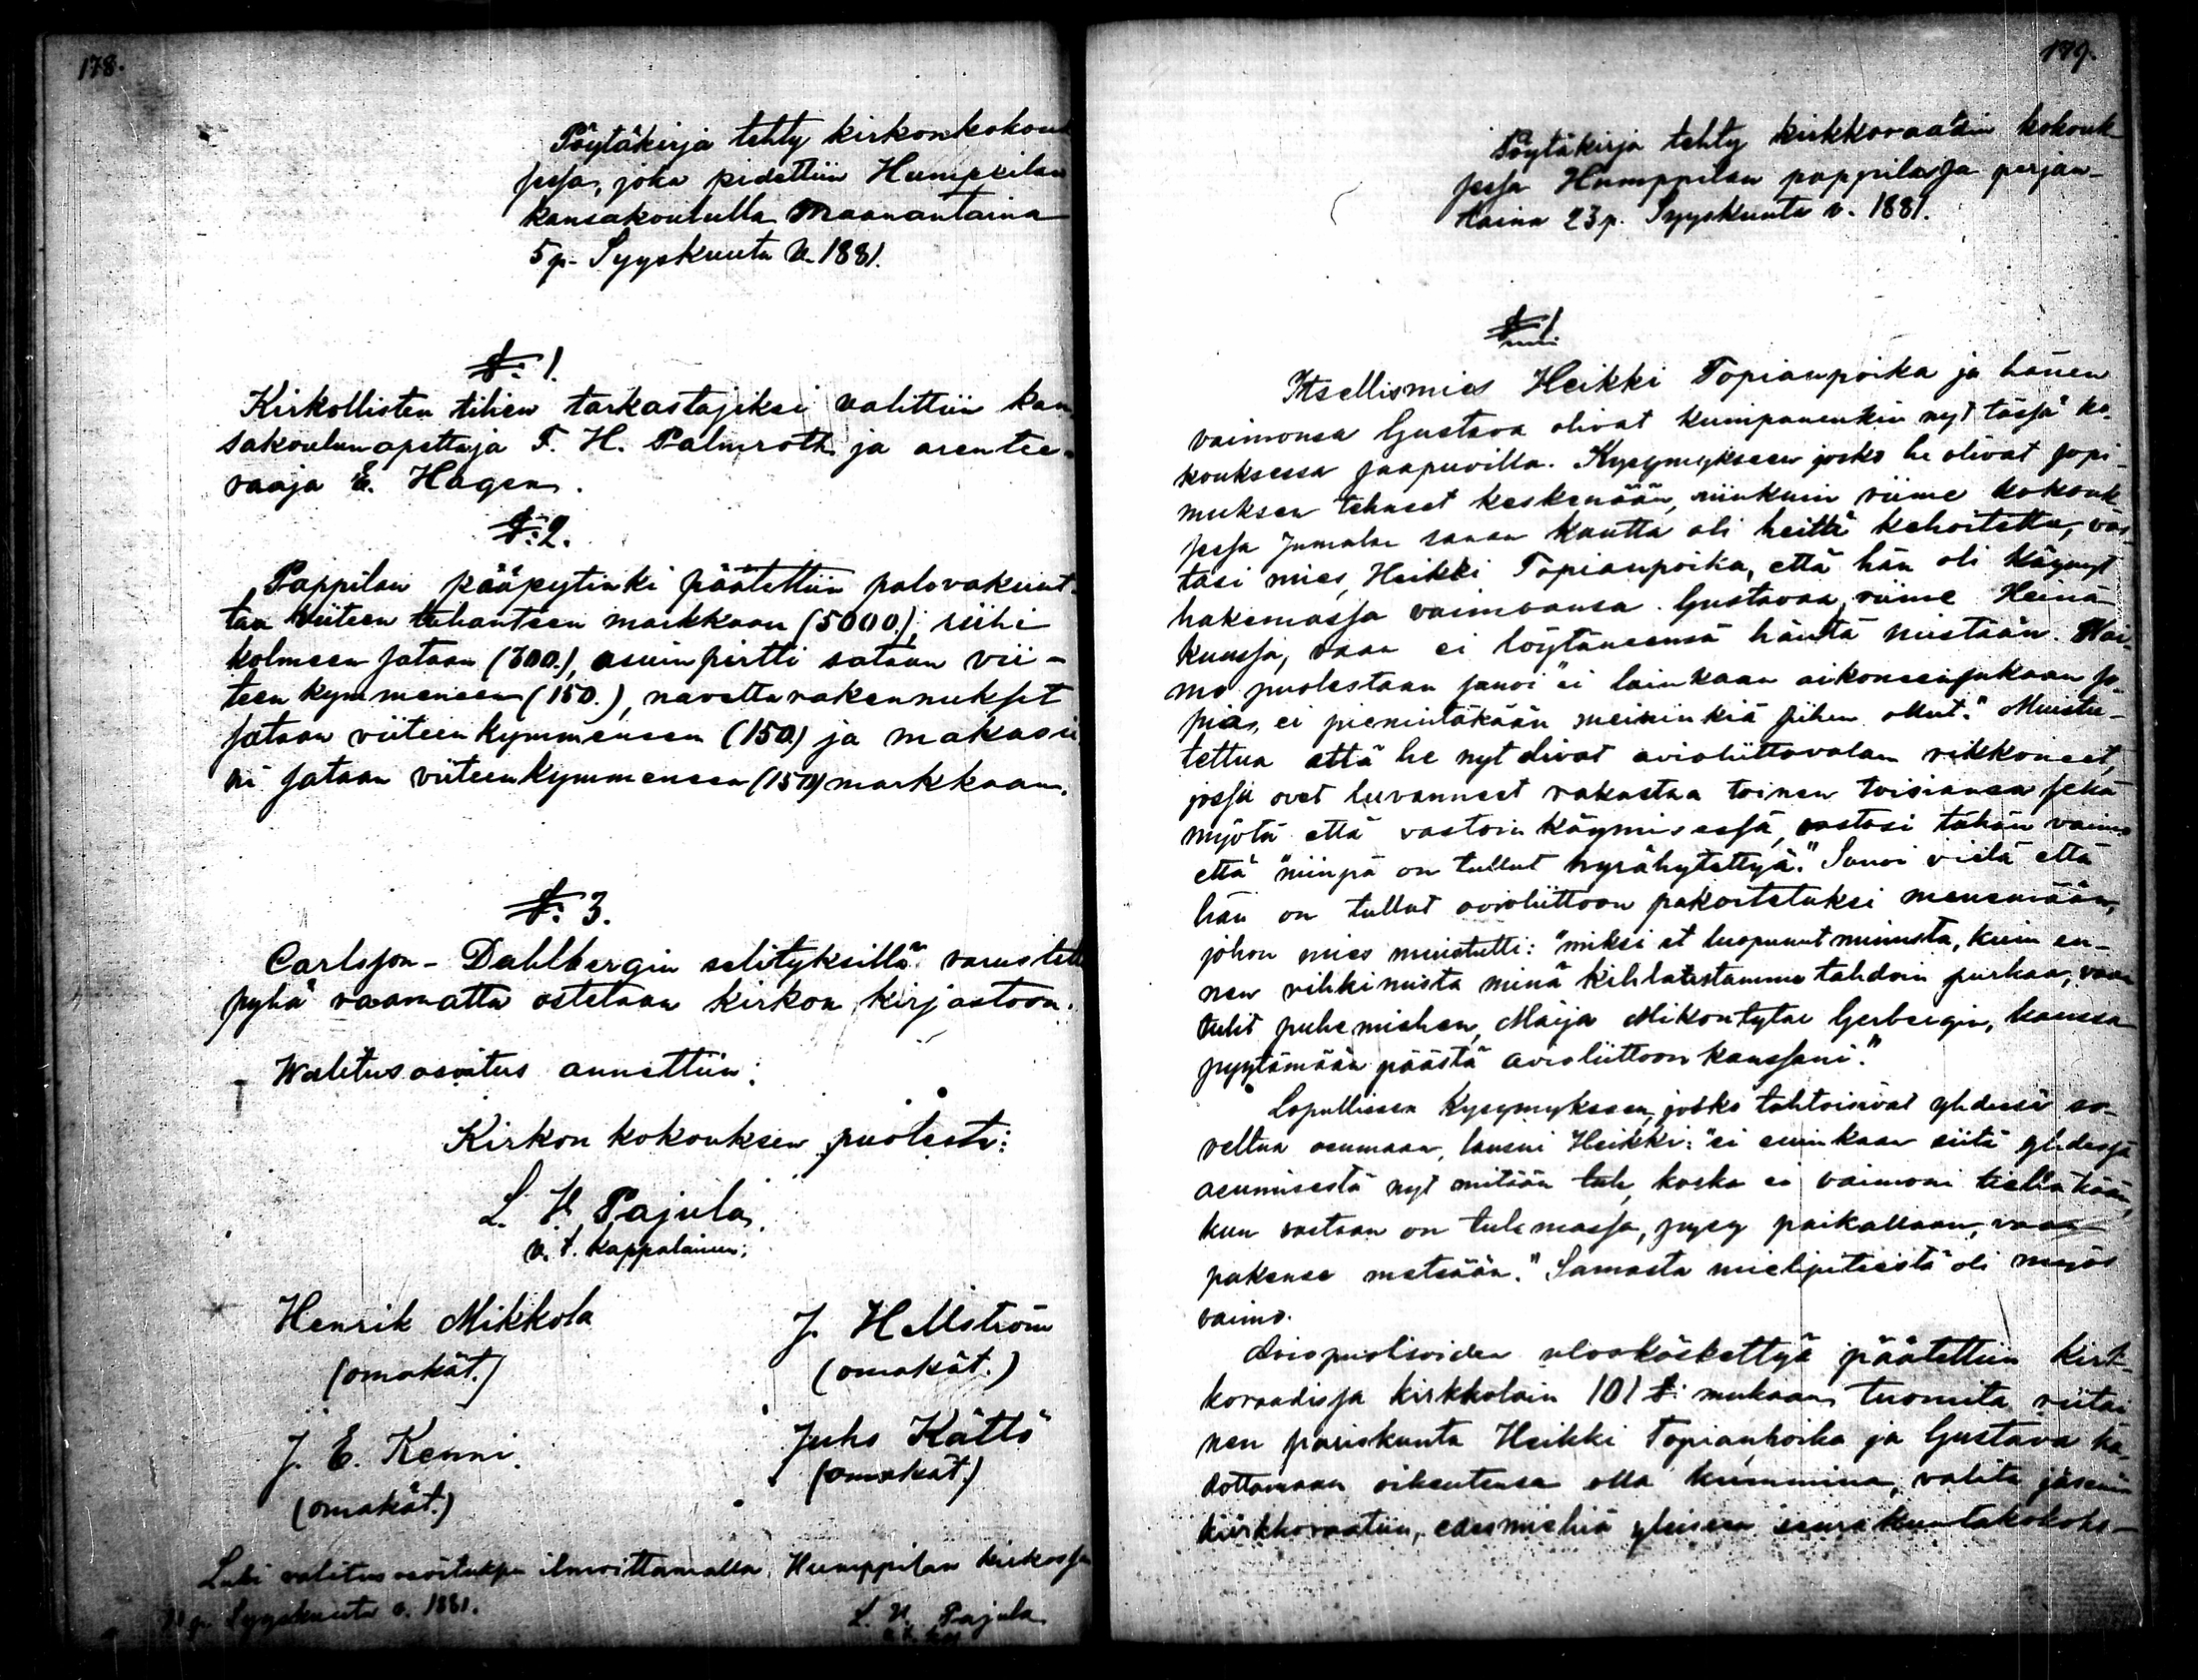 178.
Pöytäkirja tehty kirkonkokouk
sessa, joka pidettiin Humppilan
kansakoululla Maanantaina
5 p. Syyskuuta v. 1881.
§: 1.
Kirkollisten tilien tarkastajiksi valittiin kan-
sakoulunopettaja F. H. Palmroth ja arentee-
raaja E. Hagen.
§: 2.
Pappilan pääpytinki päätettiin palovakuut-
taa viiteen tuhanteen markkaan (5000.); riihi
kolmeen sataan (300.), asuinpirtti sataan vii-
teen kymmeneen (150.), navettarakennukset
sataan viiteenkymmeneen (150.) ja makasii
ni sataan viiteenkymmeneen (150) markkaan.
§: 3.
Carlsson-Dahlbergin selityksillä varustettu
pyhä raamattu ostetaan kirkon kirjastoon.
Walitusosoitus annettiin;
Kirkon kokouksen puolesta:
L. H. Pajula,
v. t. kappalainen;
Henrik Mikkola J. Hellström
(omakät.) (omakät.)
J. E. Kenni. Juho Kättö
(omakät.) (omakät.)
Luki valitusosoituksen ilmoittamalla Humppilan kirkossa
p. Syyskuuta v. 1881.
L. H. Pajula
179.
Pöytäkirja tehty kirkkoraadin kokouk
sessa Humppilan pappilassa perjan-
taina 23 p. Syyskuuta v. 1881.
§ 1
Itsellismies Heikki Topianpoika ja hänen
vaimonsa Gustava olivat kumpanenkin nyt tässä ko-
kouksessa saapuvilla. Kysymykseen josko he olivat sopi-
muksen tehneet keskenään, niinkuin viime kokouk-
sessa Jumalan sanan kautta oli heitä kehoitettu, vas-
tasi mies, Heikki Topianpoika, että hän oli käynyt
hakemassa vaimoansa Gustavaa, viime Heinä-
kuussa, vaan ei löytäneensä häntä mistään. Wai-
mo puolestaan sanoi "ei lainkaan aikoneensakaan so-
pia, ei pienintäkään meininkiä siihen ollut." Muistu-
tettua että he nyt olivat avioliittovalan rikkoneet,
jossa ovat luvanneet rakastaa toinen toisiansa sekä
myötä että vastoin käymisessä, vastasi tähän vaimo
että "niinpä on tullut hyrähytettyä." Sanoi vielä että
hän on tullut avioliittoon pakoitetuksi menemään,
johon mies muistutti: "miksi et luopunut minusta, kuin en-
nen vihkimistä minä kihlatustamme tahdoin purkaa, vaan
tulit puhemiehen, Maija Mikontytär Gerbergin, kanssa
pyytämään päästä avioliittoon kanssani."
Lopulliseen kysymykseen, josko tahtoisivat yhdessä so-
veltua asumaan, lausui Heikki: "ei suinkaan siitä yhdessä
asumisestä nyt mitään tule, koska ei vaimoni tielläkään,
kun vastaan on tulemassa, pysy paikallaan, vaan
pakenee metsään." Samasta mielipiteestä oli myös
vaimo.
Aviopuolisoiden uloskäskettyä päätettiin kirk-
koraadissa kirkkolain 101 §: mukaan tuomita riitai
nen pariskunta Heikki Topianpoika ja Gustava ka-
dottamaan oikeutensa olla kummina, valita jäseniä
kirkkoraatiin, edusmiehiä yleiseen seurakuntakokoks-